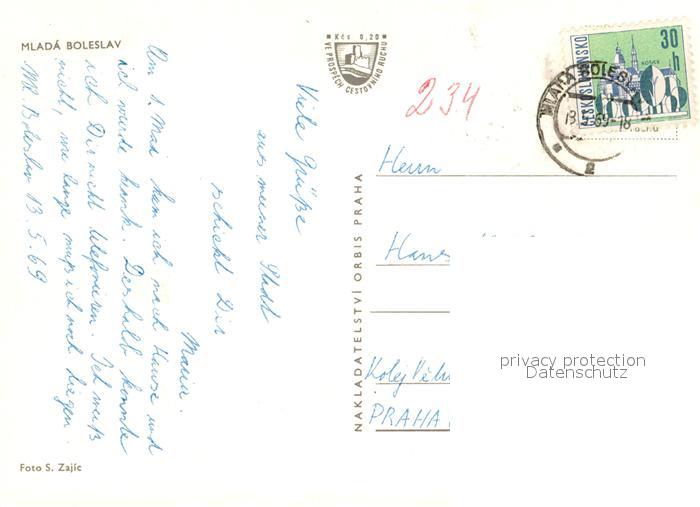 MLADÁ BOLESLAV
Ml. Boleslav 13.5.69
Viele Grüße
aus meiner Stadt
schickt Dir
Marie.
Am 1. Mai kam ich nach Hause und
ich wurde krank. Deshalb konnte
ich Dir nicht telefonieren. Ich muß
nicht, wie lange muß ich noch liegen.
Foto S. Zajíc
Kčs 0,20
VE PROSPĚCH CESTOVNÍHO RUCHU
NAKLADATELSTVÍ ORBIS PRAHA
234
ČESKOSLOVENSKO
30
h
KOŠICE
MLADÁ BOLESL
13. 69-18
2
Herrn
Hans
Kolej Větr
PRAHA
privacy protection
Datenschutz